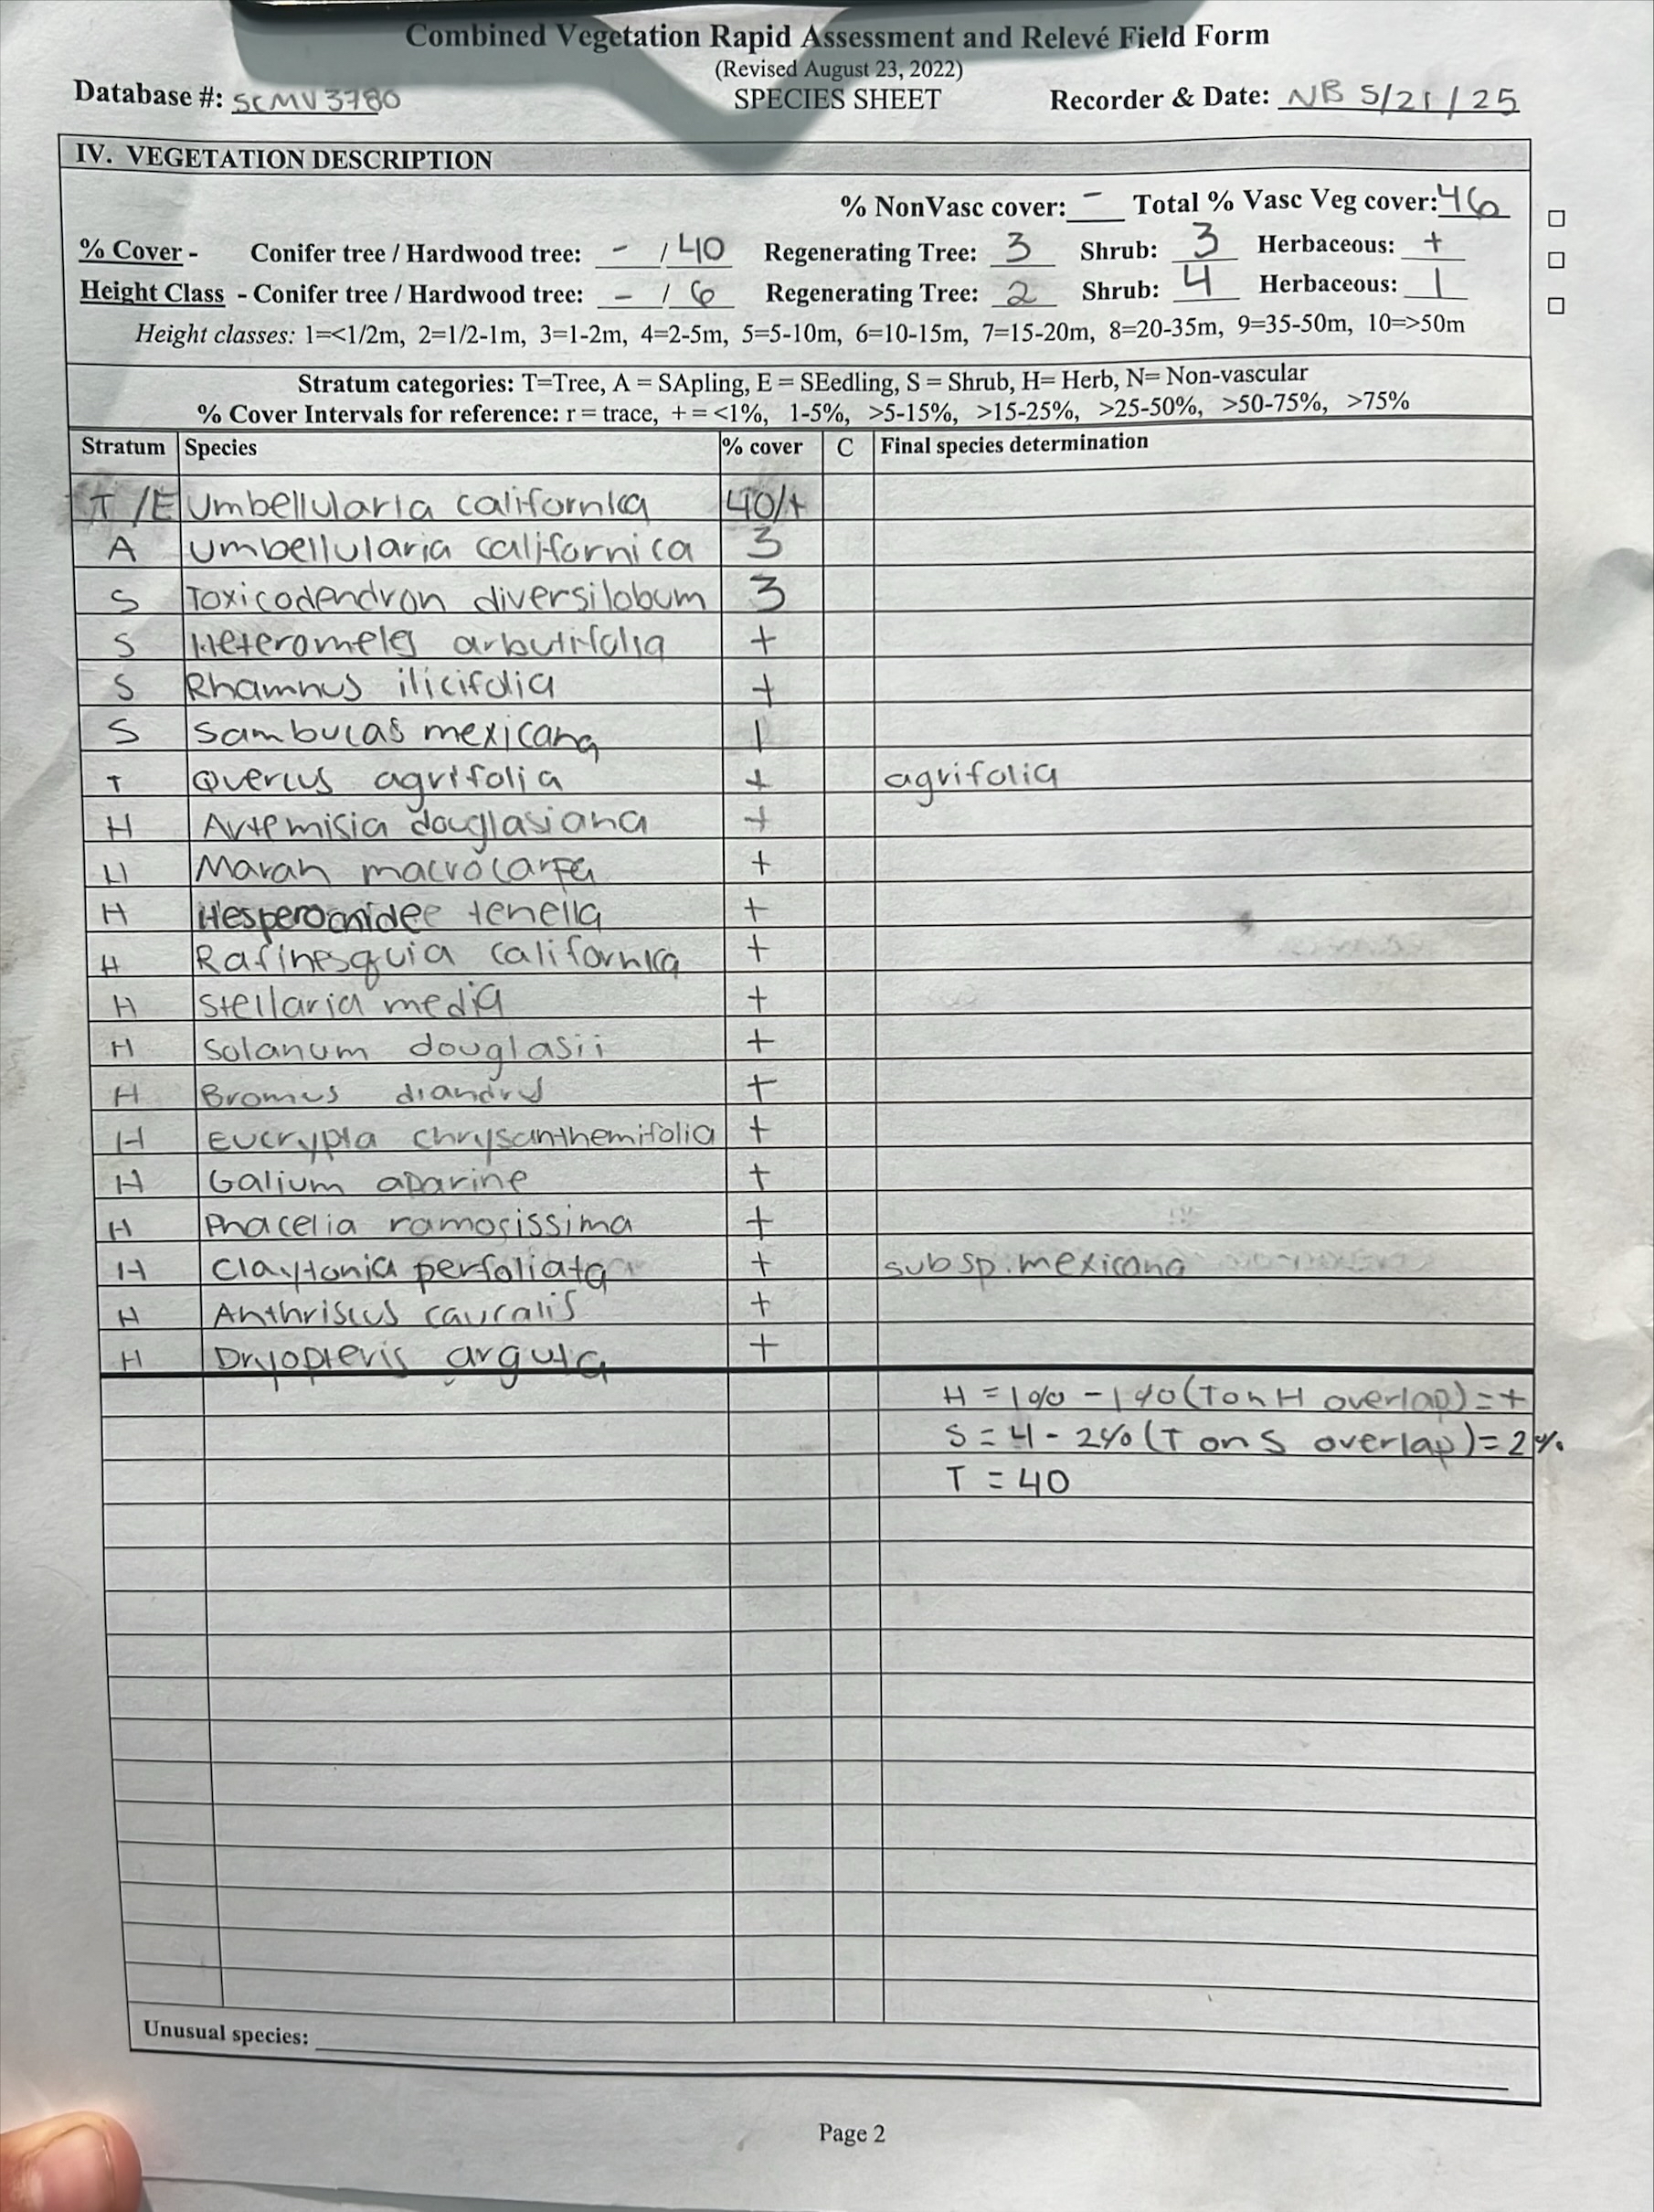 Combined Vegetation Rapid Assessment and Relevé Field Form
(Revised August 23, 2022)
Database #: SCMV3780 SPECIES SHEET Recorder & Date: NB 5/21/25
IV. VEGETATION DESCRIPTION
% NonVasc cover: - Total % Vasc Veg cover: 46
% Cover - Conifer tree / Hardwood tree: - / 40 Regenerating Tree: 3 Shrub: 3 Herbaceous: +
Height Class - Conifer tree / Hardwood tree: - / 6 Regenerating Tree: 2 Shrub: 4 Herbaceous: 1
Height classes: 1=<1/2m, 2=1/2-1m, 3=1-2m, 4=2-5m, 5=5-10m, 6=10-15m, 7=15-20m, 8=20-35m, 9=35-50m, 10=>50m
Stratum categories: T=Tree, A = SApling, E = SEedling, S = Shrub, H= Herb, N= Non-vascular
% Cover Intervals for reference: r = trace, + = <1%, 1-5%, >5-15%, >15-25%, >25-50%, >50-75%, >75%
Stratum Species % cover C Final species determination
T/E Umbellularia californica 40/+
A Umbellularia californica 3
S Toxicodendron diversilobum 3
S Heteromeles arbutifolia +
S Rhamnus ilicifolia +
S Sambucas mexicana 1
T Quercus agrifolia + agrifolia
H Artemisia douglasiana +
H Marah macrocarpa +
H Hesperocnidee tenella +
H Rafinesquia californica +
H Stellaria media +
H Solanum douglasii +
H Bromus diandrus +
H Eucrypta chrysanthemifolia +
H Galium aparine +
H Phacelia ramosissima +
H Claytonia perfoliata + subsp. mexicana
H Anthriscus caucalis +
H Dryopteris arguta +
H = 1% - 1% (T on H overlap) = +
S = 4 - 2% (T on S overlap) = 2%
T = 40
Unusual species:
Page 2